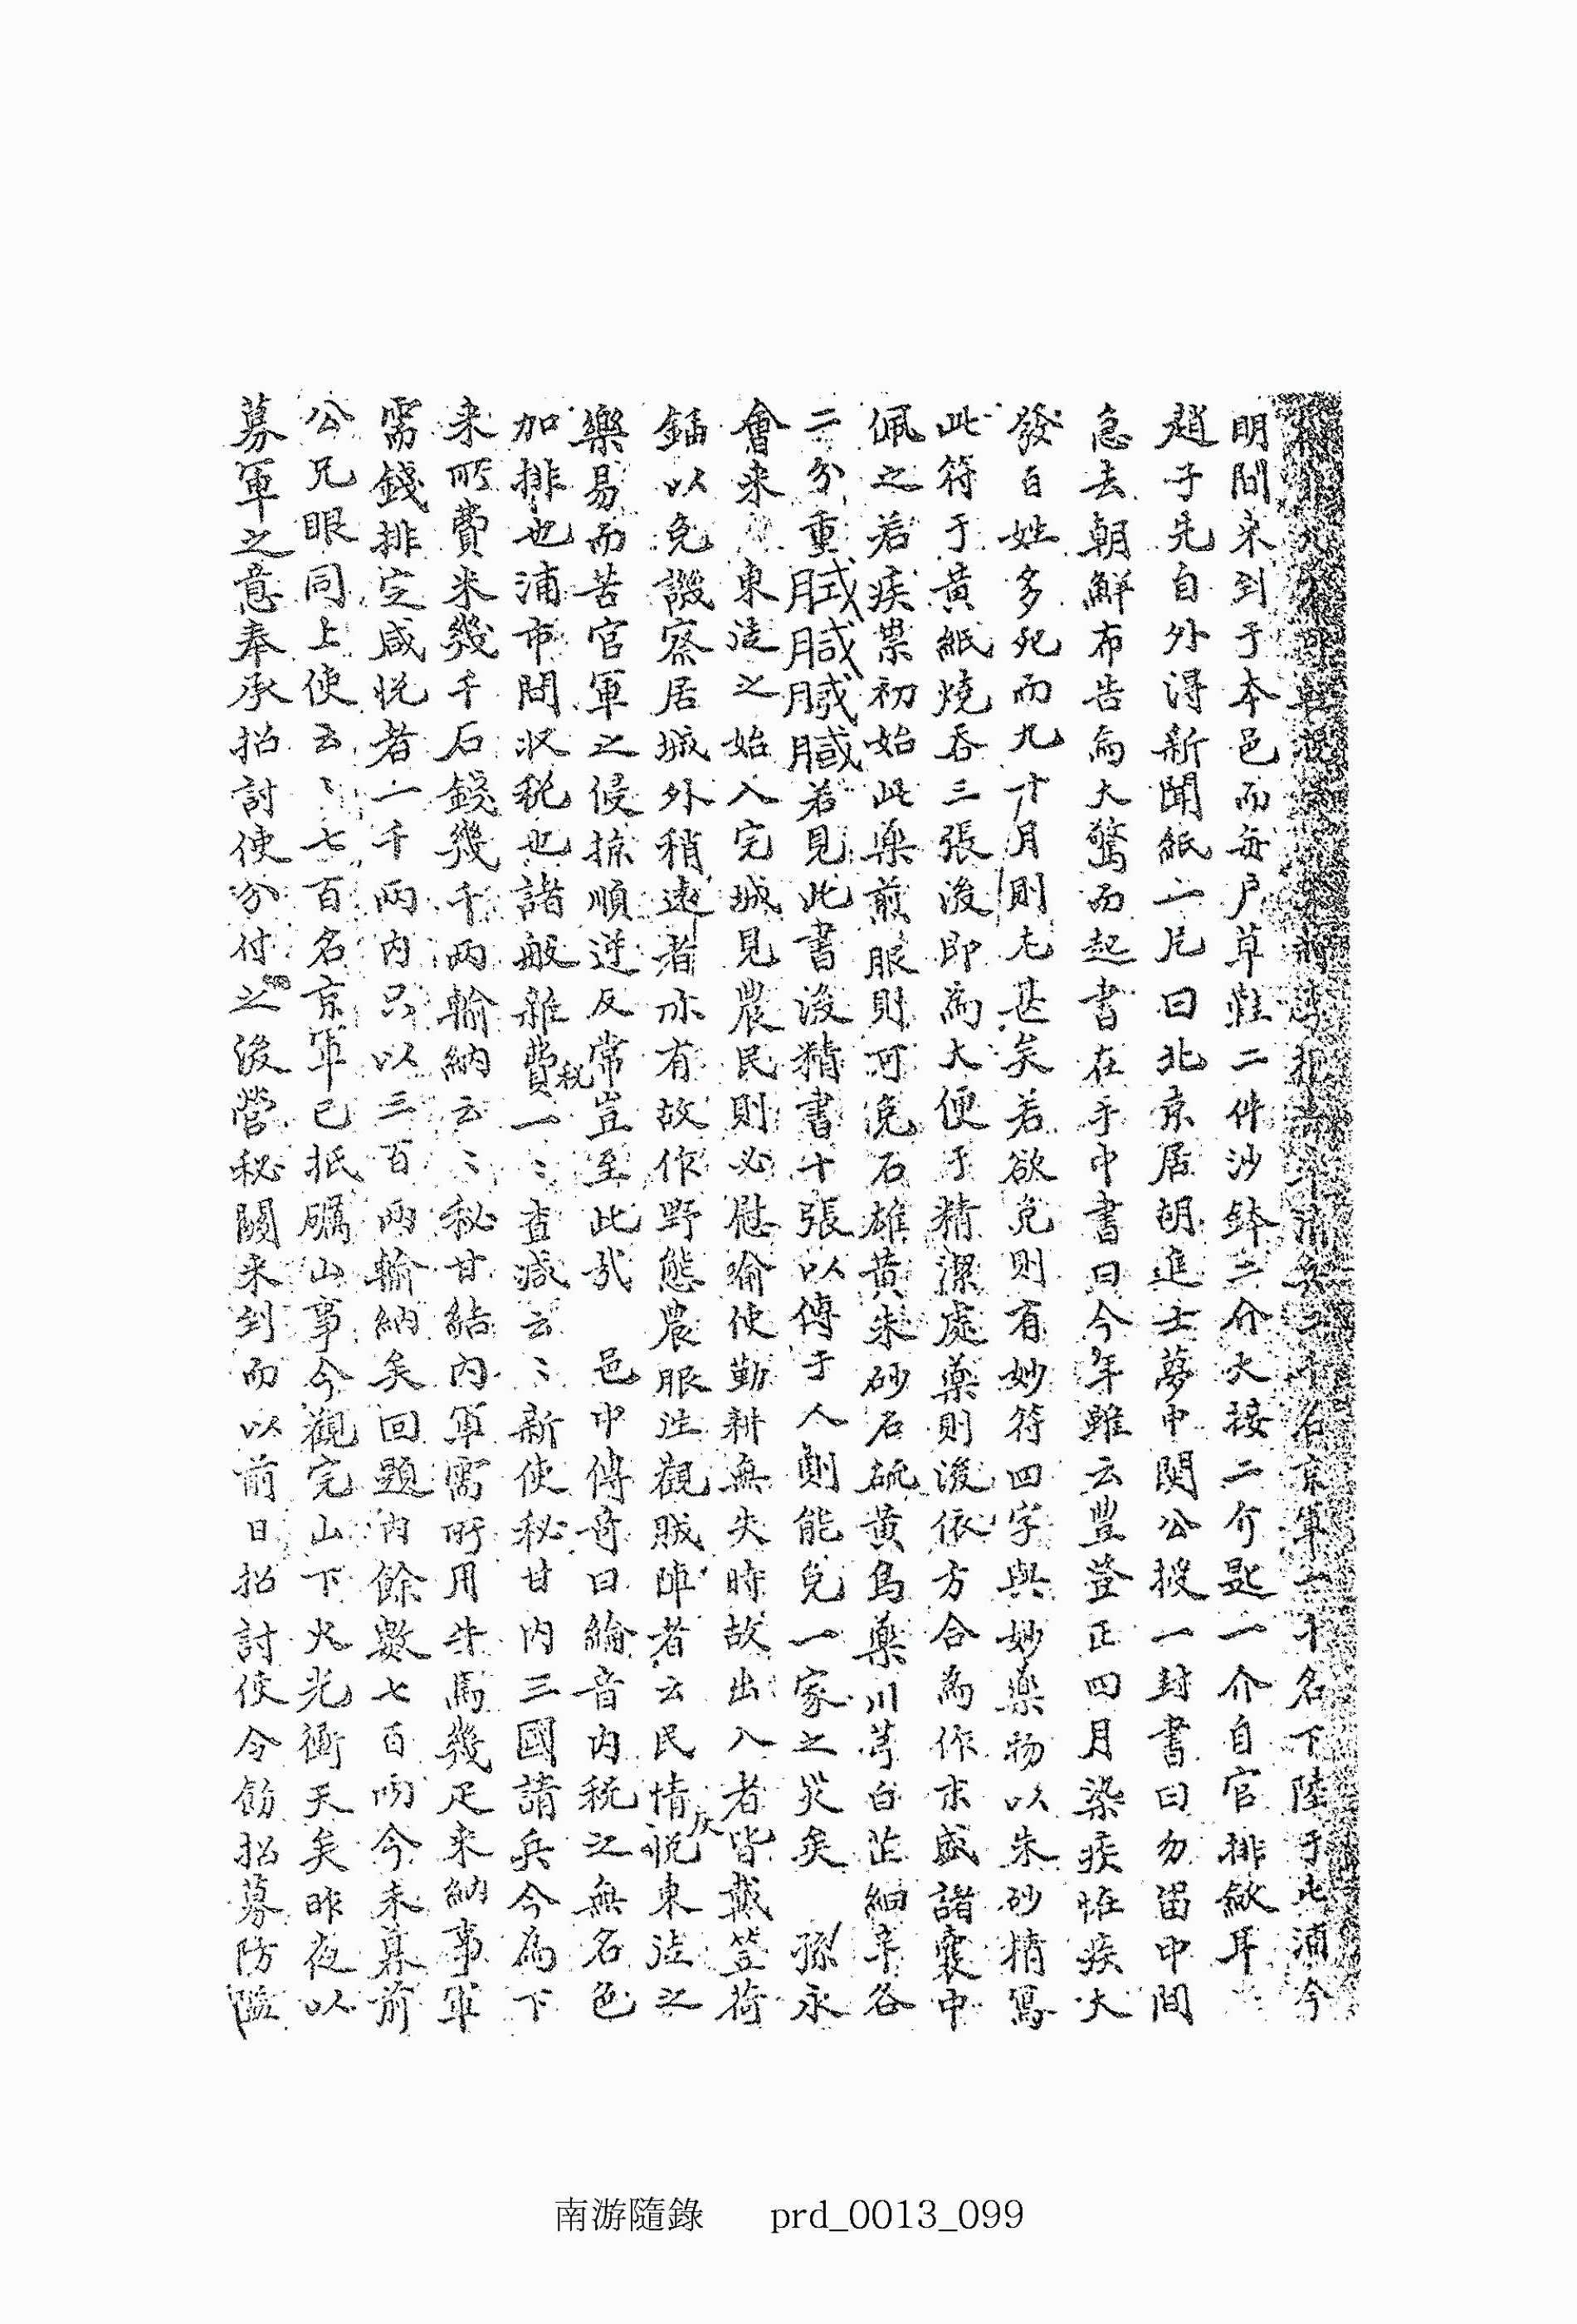 名京軍二千名下陸于此浦今
明間來到于本邑而每戶草鞋二件沙鉢三介大接二介匙一介自官排斂耳
趙子先自外淂新聞紙一片曰北京居胡進士夢中関公授一封書曰勿留中間
急去朝鮮布告爲大驚而起書在手中書曰今年雖云豊登正四月染疾恠疾大
發百姓多死而九十月則尤甚矣若欲免則有妙符四字與妙藥物以朱砂精寫
此符于黃紙燒吞三張後即爲大便于精潔處藥則後依方合爲作末盛諸囊中
佩之若疾祟初始此藥煎服則可免石雄黃朱砂石硫黃烏藥川芎白芷細辛各
二分重若見此書後精書十張以傳于人則能免一家之災矣 孫永
會來 東徒之始入完城見農民則必慰喻使勤耕無失時故出入者皆戴笠荷
鍤以免譏察居城外稍遠者亦有故作野態農服徃觀賊陣者云民情灰悅東徒之
樂易而苦官軍之侵掠順逆反常豈至此哉 邑中傳奇曰綸音內稅之無名色
加排也浦市間收稅也諸般雜費稅一〻査减云〻新使秘甘內三國請兵今爲下
來所費米幾千石錢幾千兩輸納云〻秘甘結內軍需所用牛馬幾疋來納事軍
需錢排定咸悅者一千兩內只以三百兩輸納矣回題內餘數七百兩今未幕前
公兄眼同上使云〻七百名京軍已抵礪山事今觀完山下火光衝天矣昨夜以
募軍之意奉承招討使分付之後營秘関來到而以前日招討使令飭招募防隘